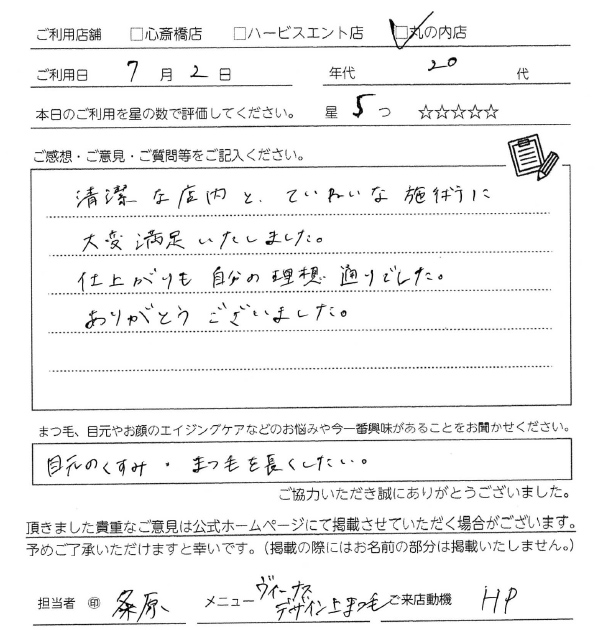 ご利用店舗 □心斎橋店 □ハービスエント店 ☑丸の内店
ご利用日 7月2日 年代 20代
本日のご利用を星の数で評価してください。 星5つ ☆☆☆☆☆
ご感想・ご意見・ご質問等をご記入ください。
清潔な店内と、ていねいな施術に
大変満足いたしました。
仕上がりも自分の理想通りでした。
ありがとうございました。
まつ毛、目元やお顔のエイジングケアなどのお悩みや今一番興味があることをお聞かせください。
目元のくすみ・まつ毛を長くしたい。
ご協力いただき誠にありがとうございました。
頂きました貴重なご意見は公式ホームページにて掲載させていただく場合がございます。
予めご了承いただけますと幸いです。（掲載の際にはお名前の部分は掲載いたしません。）
担当者 ㊞ 桑原 メニュー ヴィーナスデザイン上まつ毛 ご来店動機 HP